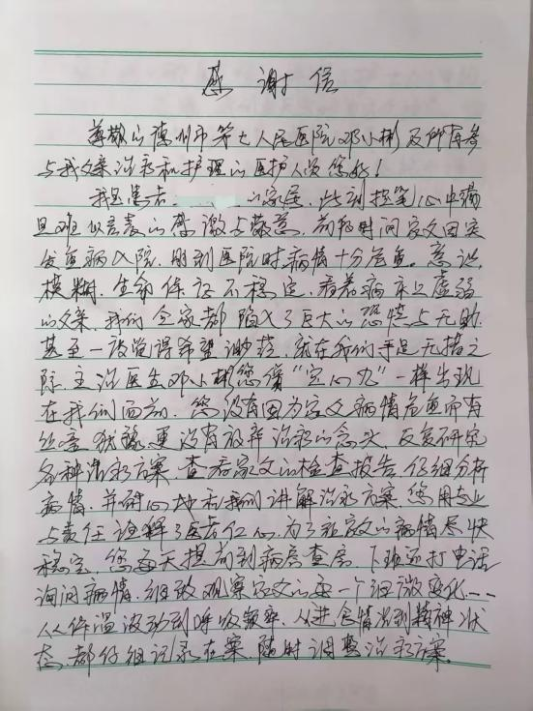 感谢信
尊敬的德州市第七人民医院邓小彬及所有参
与我父亲治疗和护理的医护人员您好!
我是患者 的家属,此刻提笔心中满
是难以言表的感激与敬意。前段时间家父因突
发重病入院,刚到医院时病情十分危重。意识
模糊,生命体征不稳定,看着病床上虚弱
的父亲,我们全家都陷入了巨大的恐慌与无助
甚至一度觉得希望渺茫,就在我们手足无措之
际,主治医生邓小彬您像“定心丸”一样出现
在我们面前,您没有因为家父病情危重而有
丝毫犹豫,更没有放弃治疗的念头,反复研究
各种治疗方案,查看家父的检查报告,仔细分析
病情,并耐心地和我们讲解治疗方案,您用专业
与责任诠释了医者仁心,为了让家父的病情尽快
稳定,您每天提前到病房查房,下班还打电话
询问病情,细致观察家父的每一个细微变化……
从体温波动到呼吸频率,从进食情况到精神状
态,都仔细记录在案,随时调整治疗方案。